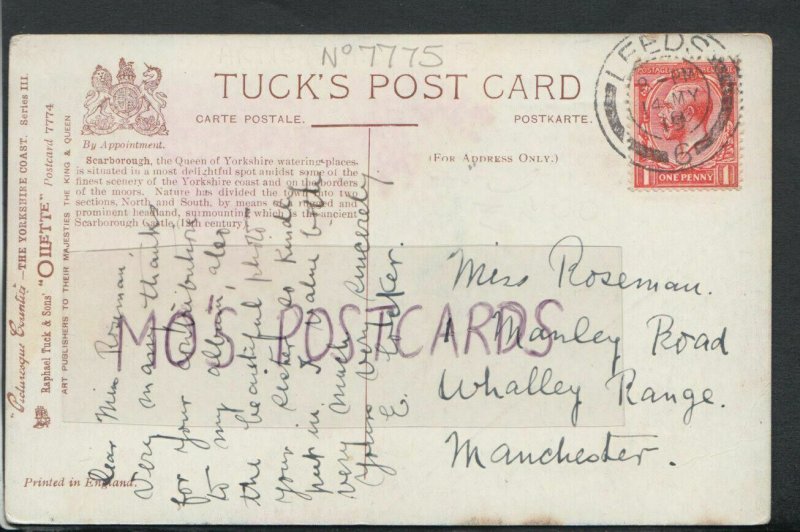 Nº 7775
TUCK'S POST CARD
CARTE POSTALE.
POSTKARTE.
By Appointment.
(FOR ADDRESS ONLY.)
Scarborough, the Queen of Yorkshire watering-places
is situated in a most delightful spot amidst some of the
finest scenery of the Yorkshire coast and on the borders
of the moors. Nature has divided the town into two
sections, North and South, by means of a rugged and
prominent headland, surmounting which is the ancient
Scarborough Castle (12th century).
"Picturesque Counties"—THE YORKSHIRE COAST. Series III.
Raphael Tuck & Sons' "OILETTE" Postcard 7774
ART PUBLISHERS TO THEIR MAJESTIES THE KING & QUEEN
Printed in England.
Dear Miss Roseman,
Very many thanks
for your contribution
to my album, also
the beautiful photo
your sister so kindly
put in. I value both
very much.
Yours very sincerely
E.
LEEDS
4 MY
6
POSTAGE REVENUE
ONE PENNY
1
Miss Roseman.
1 Manley Road
Whalley Range.
Manchester.
MO'S POSTCARDS